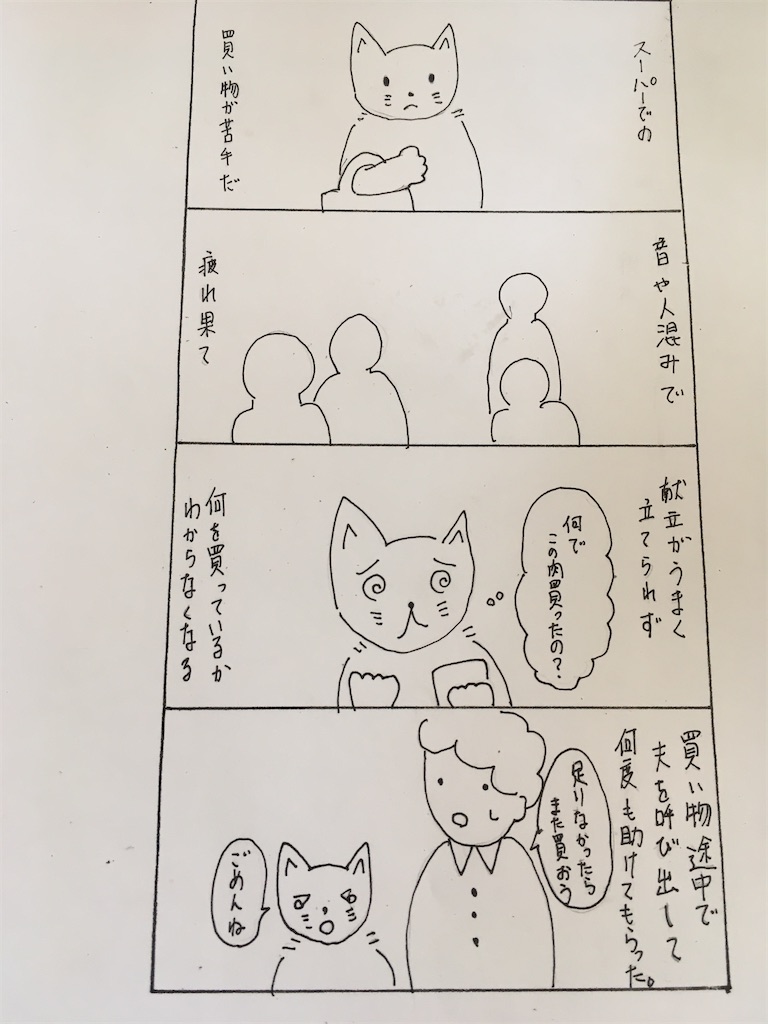 スーパーでの
買い物が苦手だ
音や人混みで
疲れ果て
献立がうまく
立てられず
何で
この肉買ったの？
何を買っているか
わからなくなる
買い物途中で
夫を呼び出して
何度も助けてもらった。
足りなかったら
また買おう
ごめんね